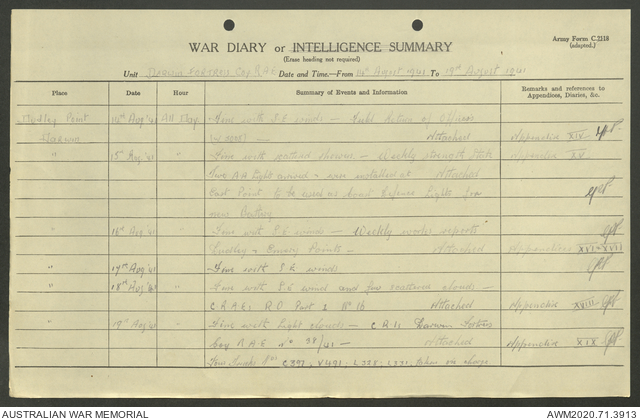 Army Form C.2118
(adapted.)
WAR DIARY or INTELLIGENCE SUMMARY
(Erase heading not required)
Unit Darwin Fortress Coy R.A.E. Date and Time.—From 14th August 1941 To 19th August 1941
Place Date Hour Summary of Events and Information Remarks and references to Appendices, Diaries, &c.
Dudley Point 14th Aug '41 All Day Fine with S.E. winds — Field Return of Officers
Darwin Attached Appendix XIV
" 15th Aug '41 " Fine with scattered showers — Weekly strength State Appendix XV
Two AA Lights arrived & were installed at Attached
East Point to be used as Coast Defence Lights for
new Battery
" 16th Aug '41 " Fine with S.E. winds — Weekly works reports
Dudley & Emery Points — Attached Appendices XVI - XVII
" 17th Aug '41 " Fine with S.E. winds
" 18th Aug '41 " Fine with S.E. wind and few scattered clouds —
C.R.A.E's R.O. Part 1 No 16 Attached Appendix XVIII
" 19th Aug '41 " Fine with light clouds — C.R.O. Darwin Fortress
Coy R.A.E. No 38/41 — Attached Appendix XIX
Four Trucks Nos C397, V491, L328, L331, taken on charge
AUSTRALIAN WAR MEMORIAL AWM2020.71.3913